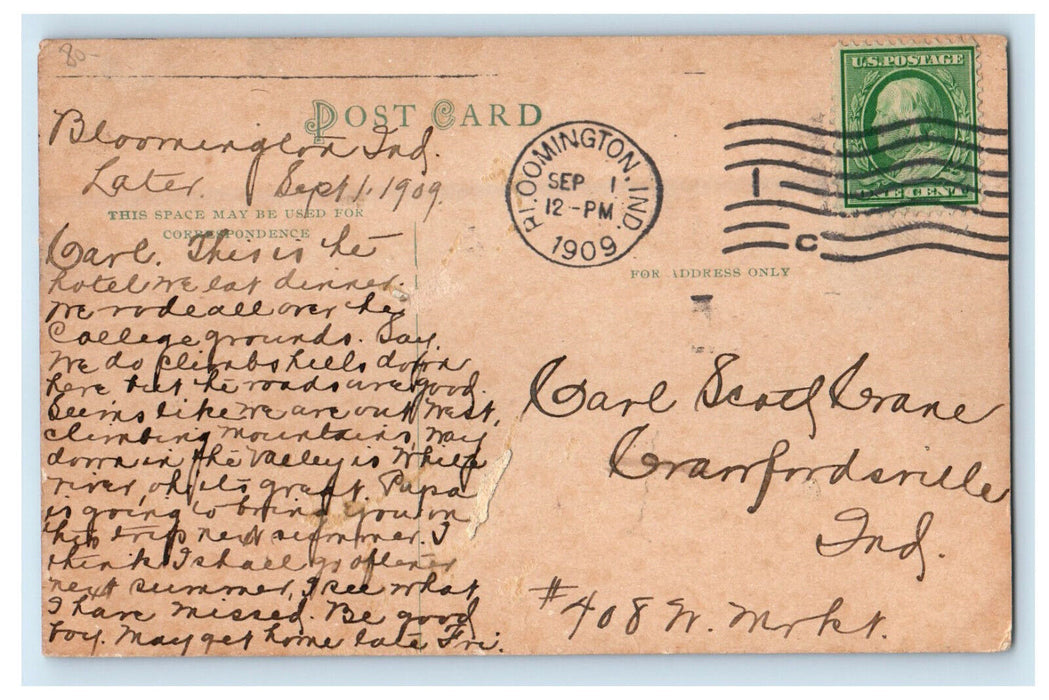 80-
U.S. POSTAGE
POST CARD
Bloomington Ind.
Later. Sept 1. 1909.
BLOOMINGTON, IND.
SEP 1
12-PM
1909
1
C
ONE CENT
THIS SPACE MAY BE USED FOR
CORRESPONDENCE
FOR ADDRESS ONLY
Carl. This is the
hotel we eat dinner.
We rode all over the
College grounds. Say,
we do climbs hills down
here but the roads are good.
Seems like we are out West,
climbing mountains, way
down in the valley is White
river, oh its great. Papa
is going to bring you on
this trip next summer. I
think I shall go oftener
next summer, I see what
I have missed. Be good
boy. May get home late Fri.
Carl Scott Crane
Crawfordsville
Ind.
#408 W. Mrkt.